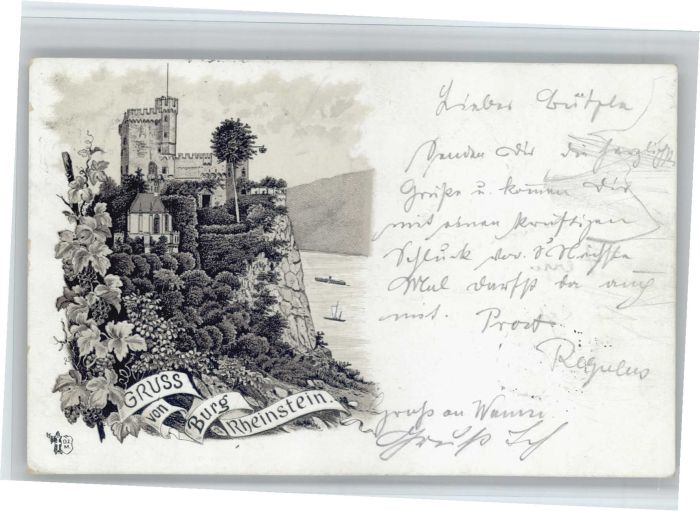 GRUSS
von
Burg
Rheinstein.
Lieber
Senden Dir die herzlichst
Grüße u. komen Dir
mit einen kräftigen
Schluck vor. S'Nächste
Mal darfst da auch
mit. Prost
Regulus
Gruß an
Gruß Ich